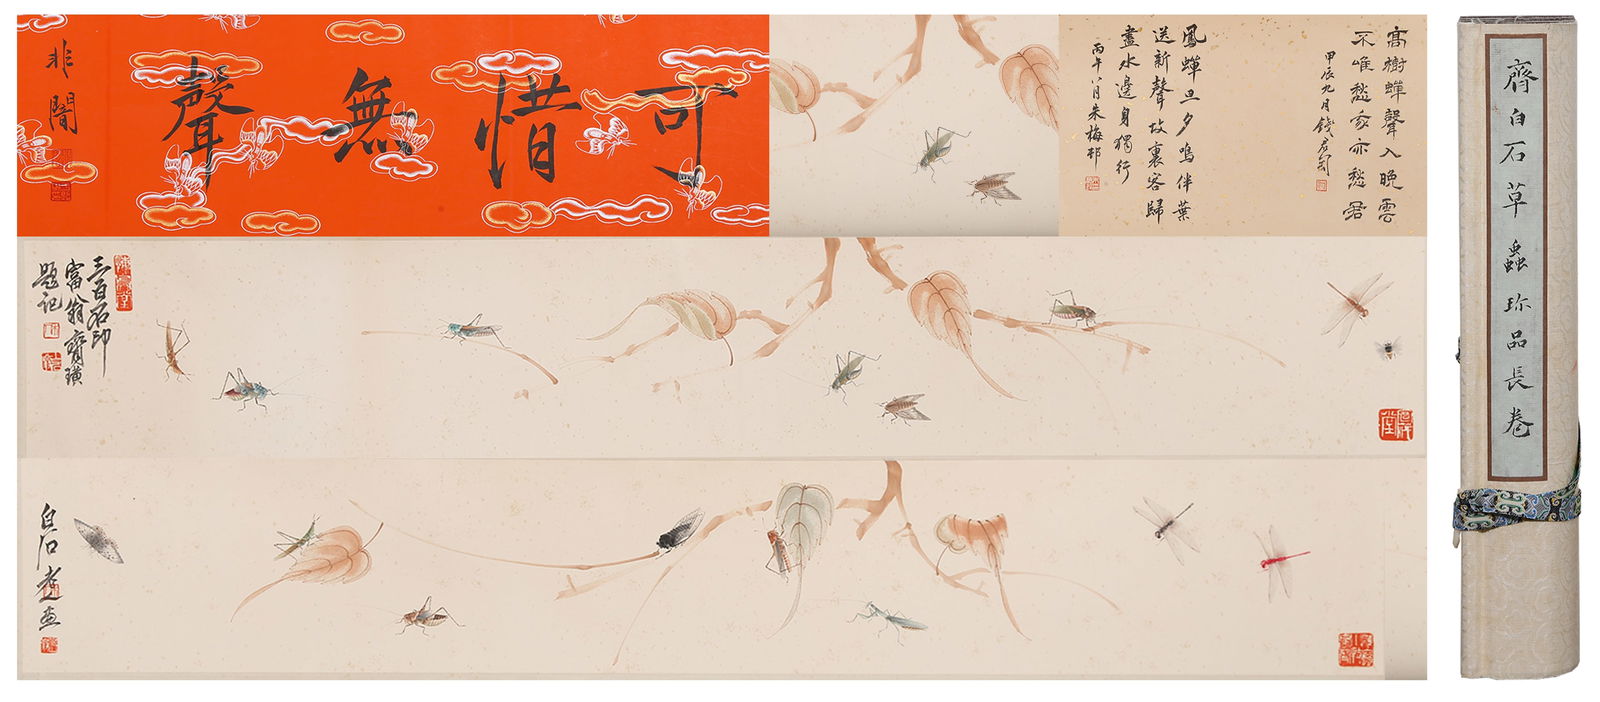 可惜無聲
非闇
高樹蟬聲入晚雲
不唯愁我亦愁君
甲辰九月錢君匋
風蟬旦夕鳴伴葉
送新聲故裏客歸
盡水邊身獨行
丙午八月朱梅邨
三百石印
富翁齊璜
題記
白石老人畫
齊白石草蟲珍品長卷